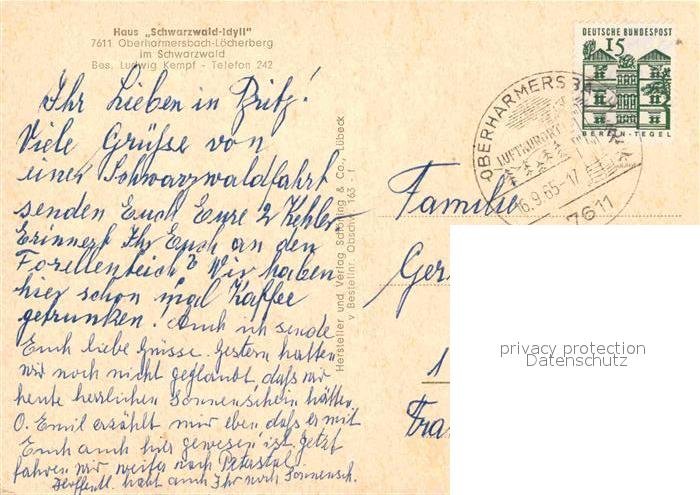 Haus „Schwarzwald-Idyll"
7611 Oberharmersbach-Löcherberg
im Schwarzwald
Bes. Ludwig Kempf - Telefon 242
Ihr Lieben in Britz!
Viele Grüße von
einer Schwarzwaldfahrt
senden Euch Eure 2 Kehler
Erinnert Ihr Euch an den
Forellenteich? Wir haben
hier schon mal Kaffee
getrunken. Auch ich sende
Euch liebe Grüsse. Gestern hätten
wir noch nicht geglaubt, daß wir
heute herrlichen Sonnenschein hätten
O. Emil erzählt mir eben, daß er mit
Euch auch hier gewesen ist. Jetzt
fahren wir weiter nach Peterstal
Hoffentl. habt auch Ihr noch Sonnensch.
Hersteller und Verlag Schöning & Co., Lübeck
v Bestellnr. Obschw 163 - f
DEUTSCHE BUNDESPOST
15
BERLIN-TEGEL
OBERHARMERSBACH
LUFTKURORT
16.9.65-17
7611
Familie
Ger
1
Fra
privacy protection
Datenschutz